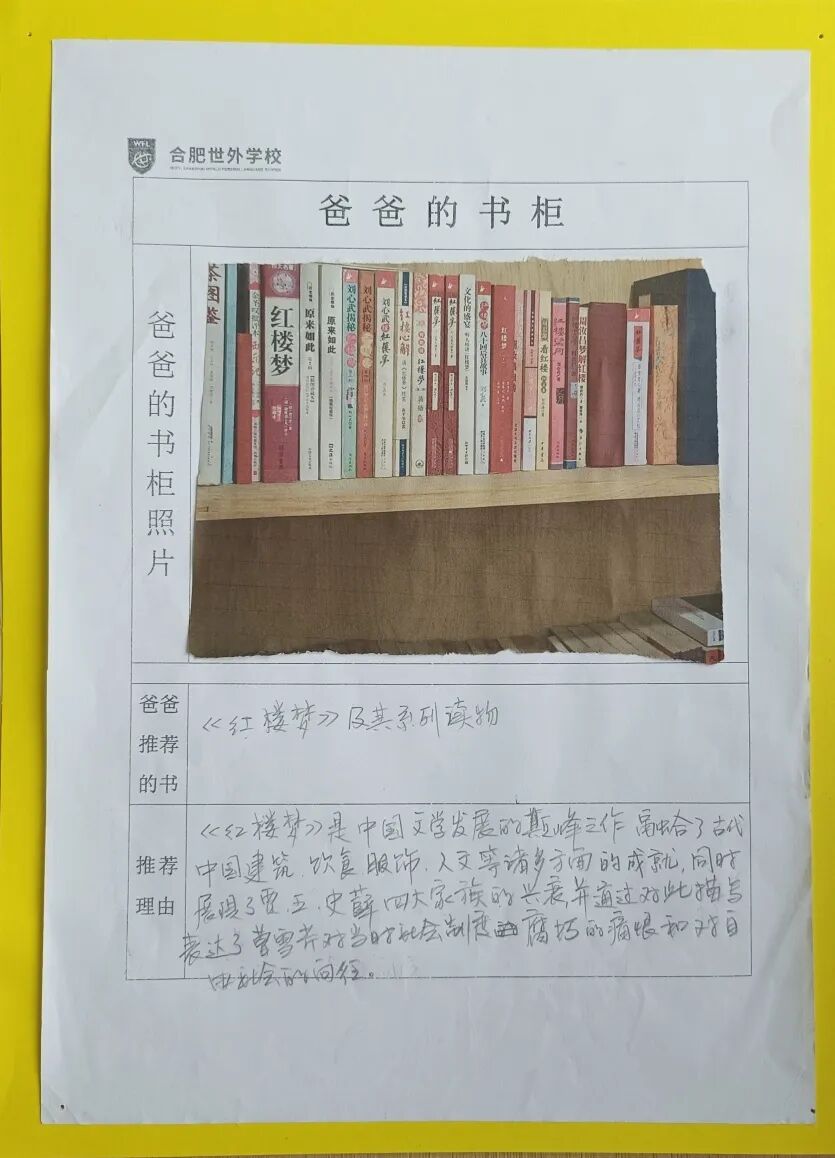 WFL
合肥世外学校
爸爸的书柜
爸爸的书柜照片
茶图鉴
红楼梦
原来如此
原来如此
刘心武揭秘
刘心武揭秘
刘心武
红楼心解
红楼梦
文化的盛宴
八十回后真故事
红楼梦
看红楼
红楼望月
周汝昌梦解红楼
爸爸
推荐
的书
《红楼梦》及其系列读物
推荐
理由
《红楼梦》是中国文学发展的巅峰之作 融合了古代
中国建筑、饮食、服饰、人文等诸多方面的成就,同时
展现了贾、王、史、薛四大家族的兴衰,并通过对此描写
表达了曹雪芹对当时社会制度 腐朽的痛恨和对自
由社会的向往。